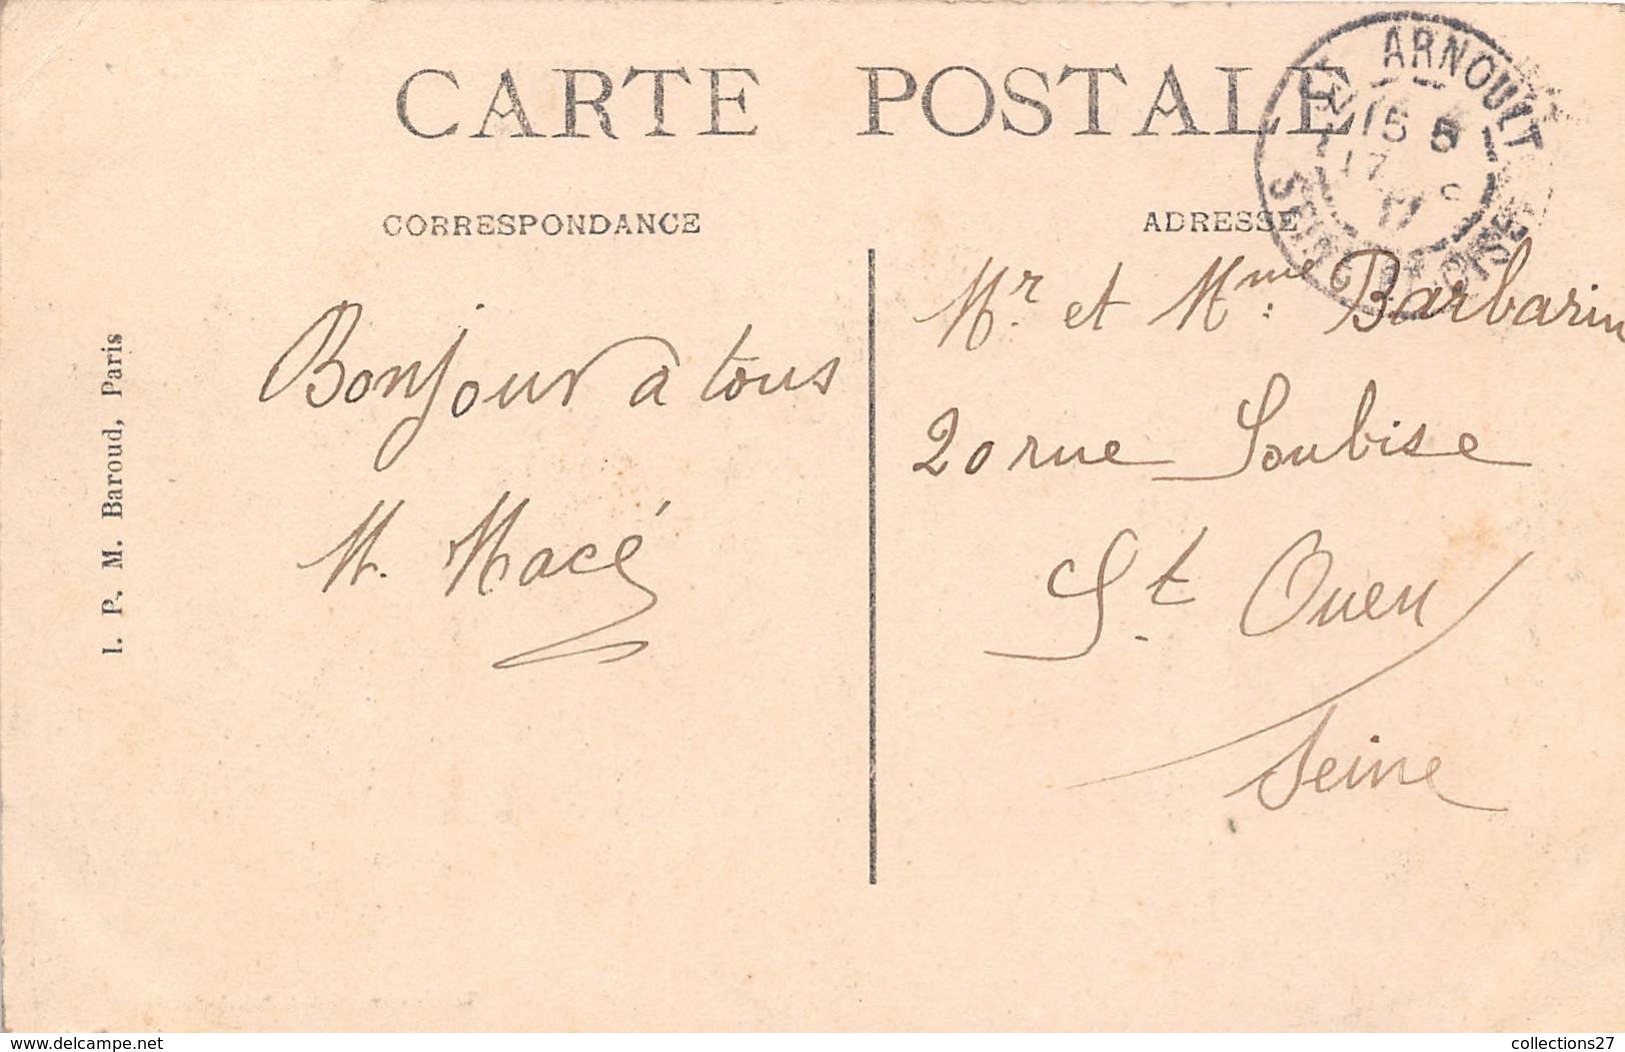 CARTE POSTALE
ARNOULT
15 5
17
SEINE
CORRESPONDANCE
ADRESSE
Bonjour a tous
M. Macé
Mr. et Mme: Barbarin
20 rue Soubise
St. Ouen
Seine
I. P. M. Baroud, Paris
delcampe.net
collections27